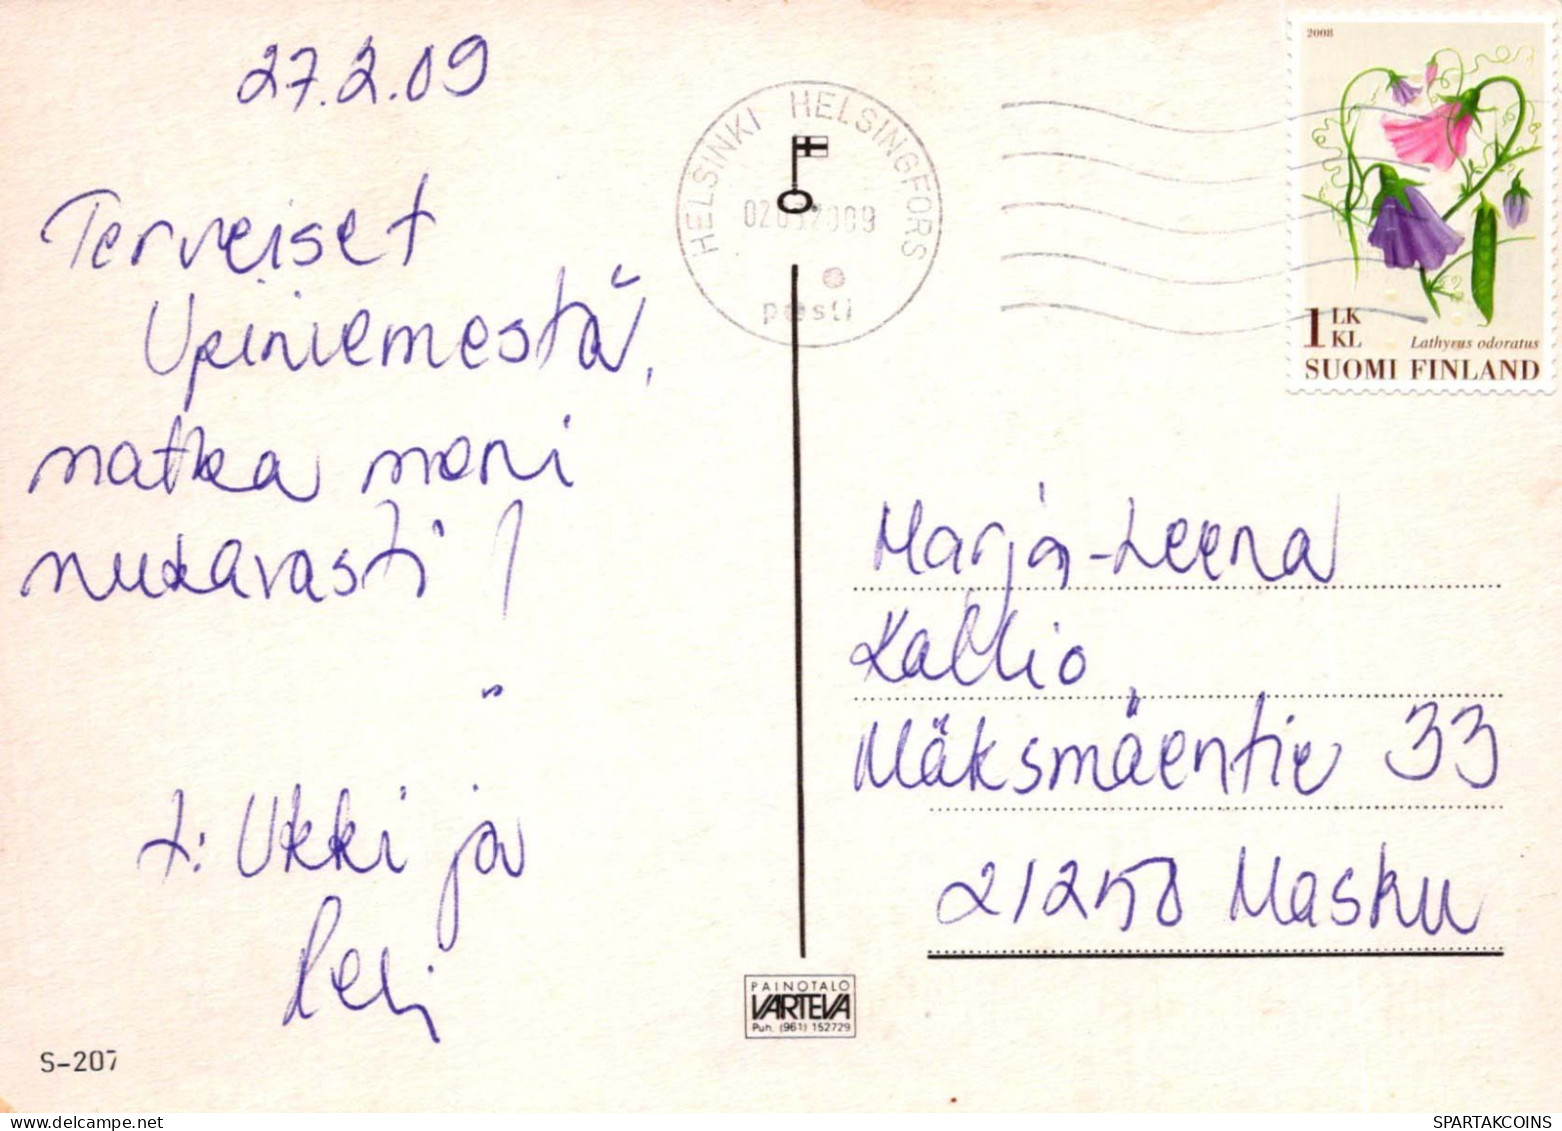 27.2.09
Terveiset
Upiniemestä,
matka meni
mukavasti!
t: Ukki ja
HELSINKI HELSINGFORS
2009
posti
2008
1 LK
KL
Lathyrus odoratus
SUOMI FINLAND
Marja-Leena
Kallio
Mäksmäentie 33
21250 Masku
PAINOTALO
VARTEVA
Puh. (961) 152729
S-207
SPARTAKCOINS